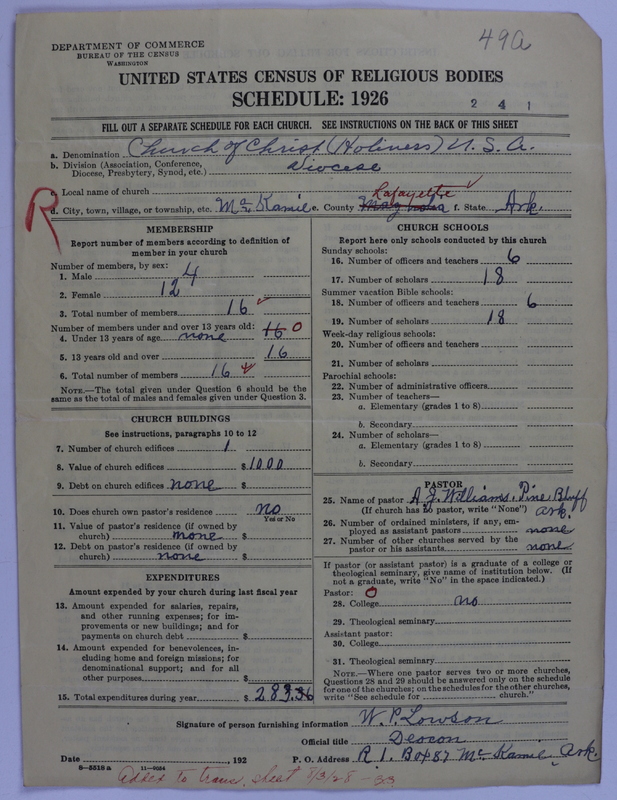 49a
DEPARTMENT OF COMMERCE
BUREAU OF THE CENSUS
WASHINGTON
UNITED STATES CENSUS OF RELIGIOUS BODIES
SCHEDULE: 1926
2 4 1
FILL OUT A SEPARATE SCHEDULE FOR EACH CHURCH. SEE INSTRUCTIONS ON THE BACK OF THIS SHEET
a. Denomination Church of Christ (Holiness) U. S. A.
b. Division (Association, Conference, Diocese, Presbytery, Synod, etc.) Diocese
c. Local name of church
R
d. City, town, village, or township, etc. Mc Kamie e. County Lafayette f. State Ark
MEMBERSHIP
Report number of members according to definition of member in your church
Number of members, by sex:
1. Male 4
2. Female 12
3. Total number of members 16 ✓
Number of members under and over 13 years old:
4. Under 13 years of age none 16 0
5. 13 years old and over 16
6. Total number of members 16 ✓
NOTE.—The total given under Question 6 should be the same as the total of males and females given under Question 3.
CHURCH BUILDINGS
See instructions, paragraphs 10 to 12
7. Number of church edifices 1
8. Value of church edifices $1000
9. Debt on church edifices none $
10. Does church own pastor's residence no
Yes or No
11. Value of pastor's residence (if owned by church) none $
12. Debt on pastor's residence (if owned by church) none $
EXPENDITURES
Amount expended by your church during last fiscal year
13. Amount expended for salaries, repairs, and other running expenses; for improvements or new buildings; and for payments on church debt $
14. Amount expended for benevolences, including home and foreign missions; for denominational support; and for all other purposes $
15. Total expenditures during year $ 283.36
CHURCH SCHOOLS
Report here only schools conducted by this church
Sunday schools:
16. Number of officers and teachers 6
17. Number of scholars 18
Summer vacation Bible schools:
18. Number of officers and teachers 6
19. Number of scholars 18
Week-day religious schools:
20. Number of officers and teachers
21. Number of scholars
Parochial schools:
22. Number of administrative officers
23. Number of teachers—
a. Elementary (grades 1 to 8)
b. Secondary
24. Number of scholars—
a. Elementary (grades 1 to 8)
b. Secondary
PASTOR
25. Name of pastor A. J. Williams, Pine Bluff
(If church has no pastor, write "None") Ark.
26. Number of ordained ministers, if any, employed as assistant pastors none
27. Number of other churches served by the pastor or his assistants none
If pastor (or assistant pastor) is a graduate of a college or theological seminary, give name of institution below. (If not a graduate, write "No" in the space indicated.)
Pastor: O
28. College no
29. Theological seminary
Assistant pastor:
30. College
31. Theological seminary
NOTE.—Where one pastor serves two or more churches, Questions 28 and 29 should be answered only on the schedule for one of the churches; on the schedules for the other churches, write "See schedule for church."
Signature of person furnishing information W. P. Lowson
Official title Deocon
Date , 192 P. O. Address R 1. Box 87 Mc Kamie, Ark.
8—5518 a 11—9054
Added to trans. sheet 7/3/28 - 33